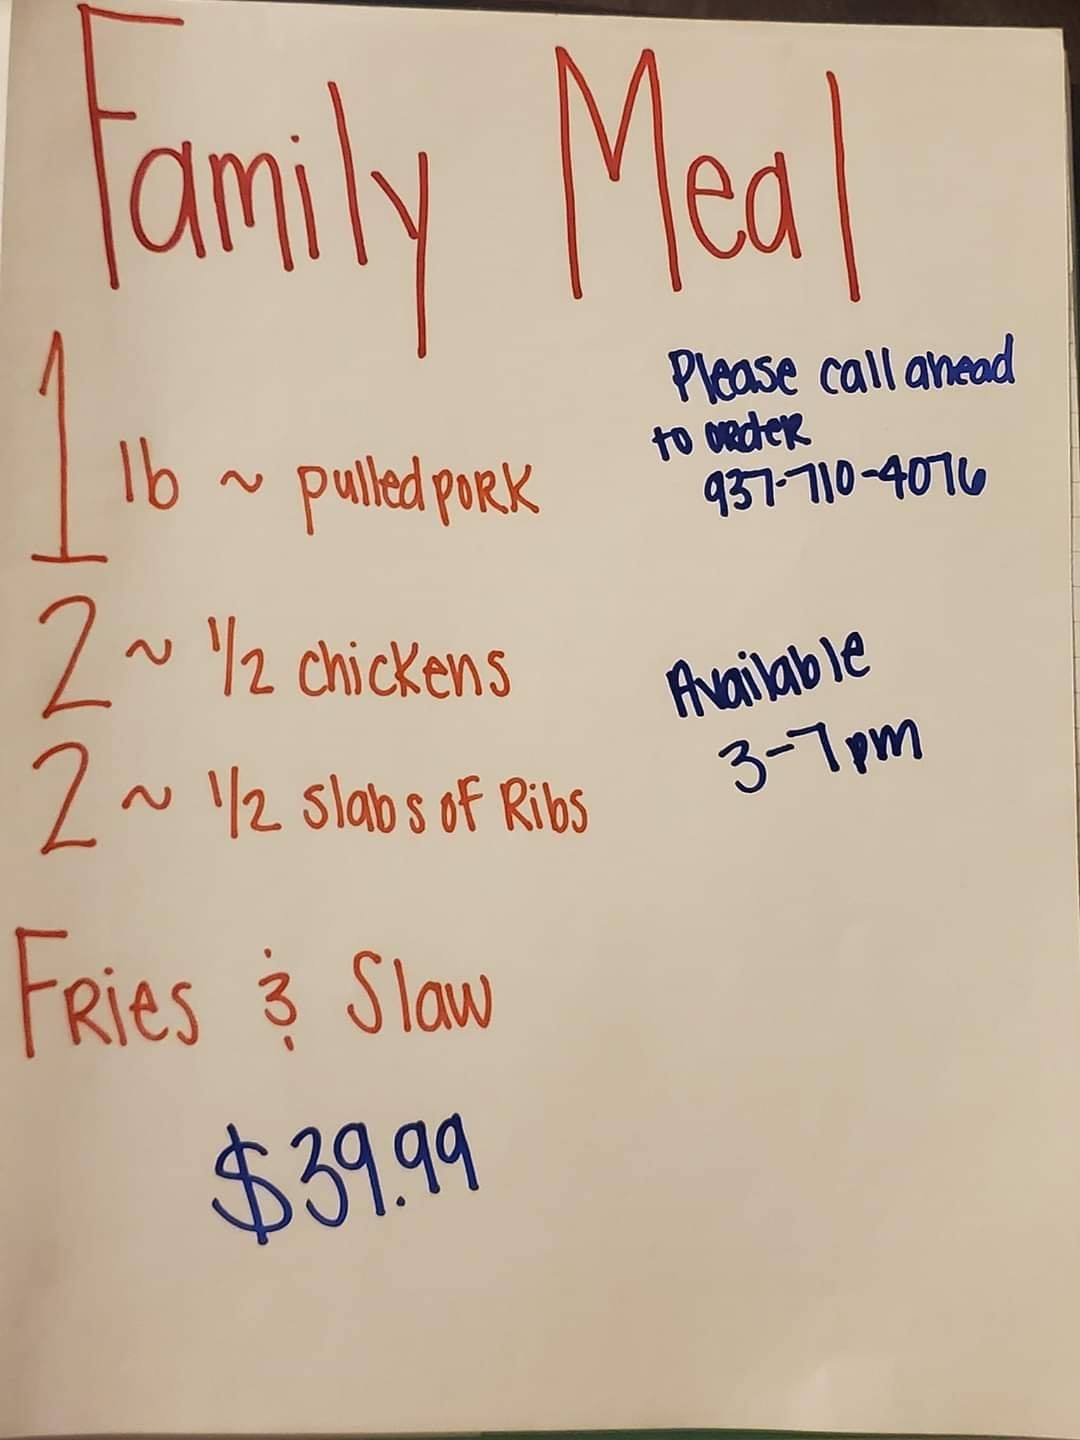 Family Meal
1 lb ~ pulled pork
2 ~ 1/2 chickens
2 ~ 1/2 slabs of Ribs
Fries & Slaw
$39.99
Please call ahead
to order
937-710-4076
Available
3-7pm